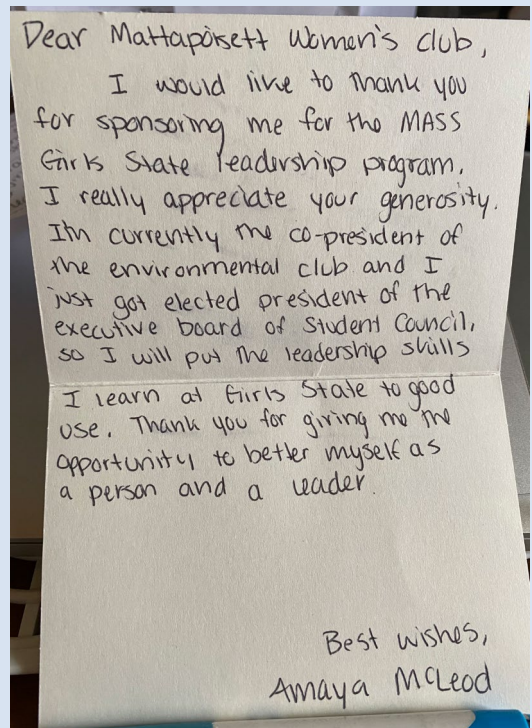 Dear Mattapoisett Women's club,
I would like to thank you
for sponsoring me for the MASS
Girls State leadership program.
I really appreciate your generosity.
I'm currently the co-president of
the environmental club and I
just got elected president of the
executive board of Student Council,
so I will put the leadership skills
I learn at Girls State to good
use. Thank you for giving me the
opportunity to better myself as
a person and a leader.
Best wishes,
Amaya McLeod